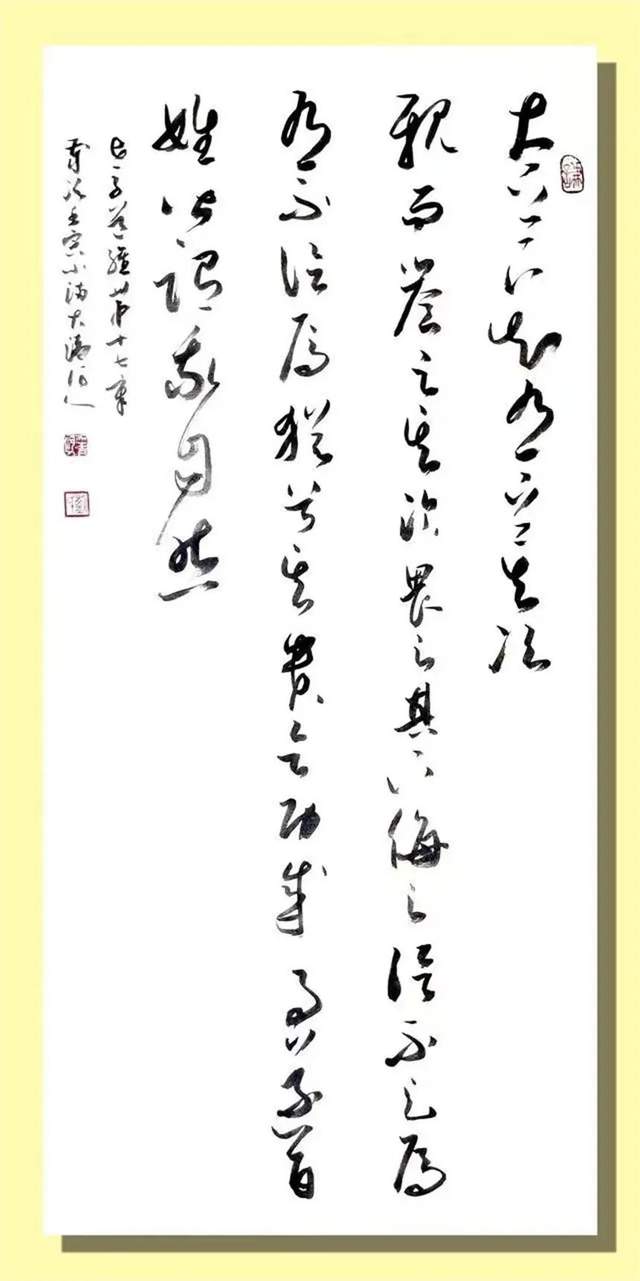 大上下知有之其次
親而譽之其次畏之其下侮之信不足焉
有不信焉猶兮其貴言功成事遂百
姓皆謂我自然
老子道經第十七章
歲次壬寅小滿大